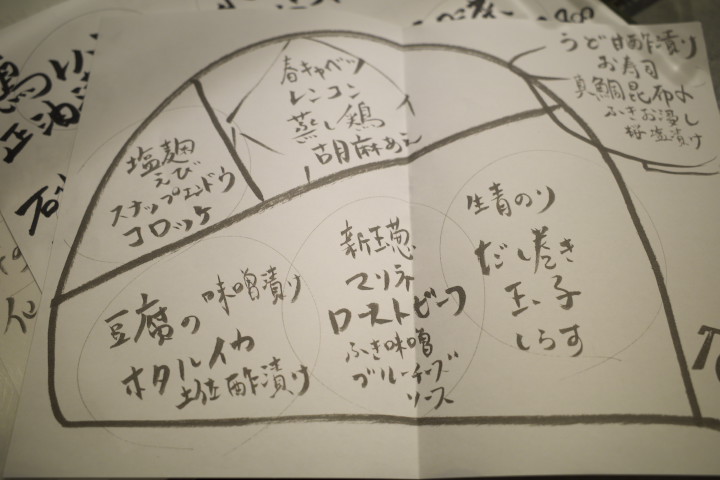 春キャベツ
レンコン
蒸し鶏
胡麻あえ
うど甘酢漬け
お寿司
真鯛昆布〆
ふきお浸し
桜塩漬け
塩麹
えび
スナップエンドウ
コロッケ
豆腐の味噌漬け
ホタルイカ
土佐酢漬け
新玉葱
マリネ
ローストビーフ
ふき味噌
ブルーチーズ
ソース
生青のり
だし巻き
玉子
しらす